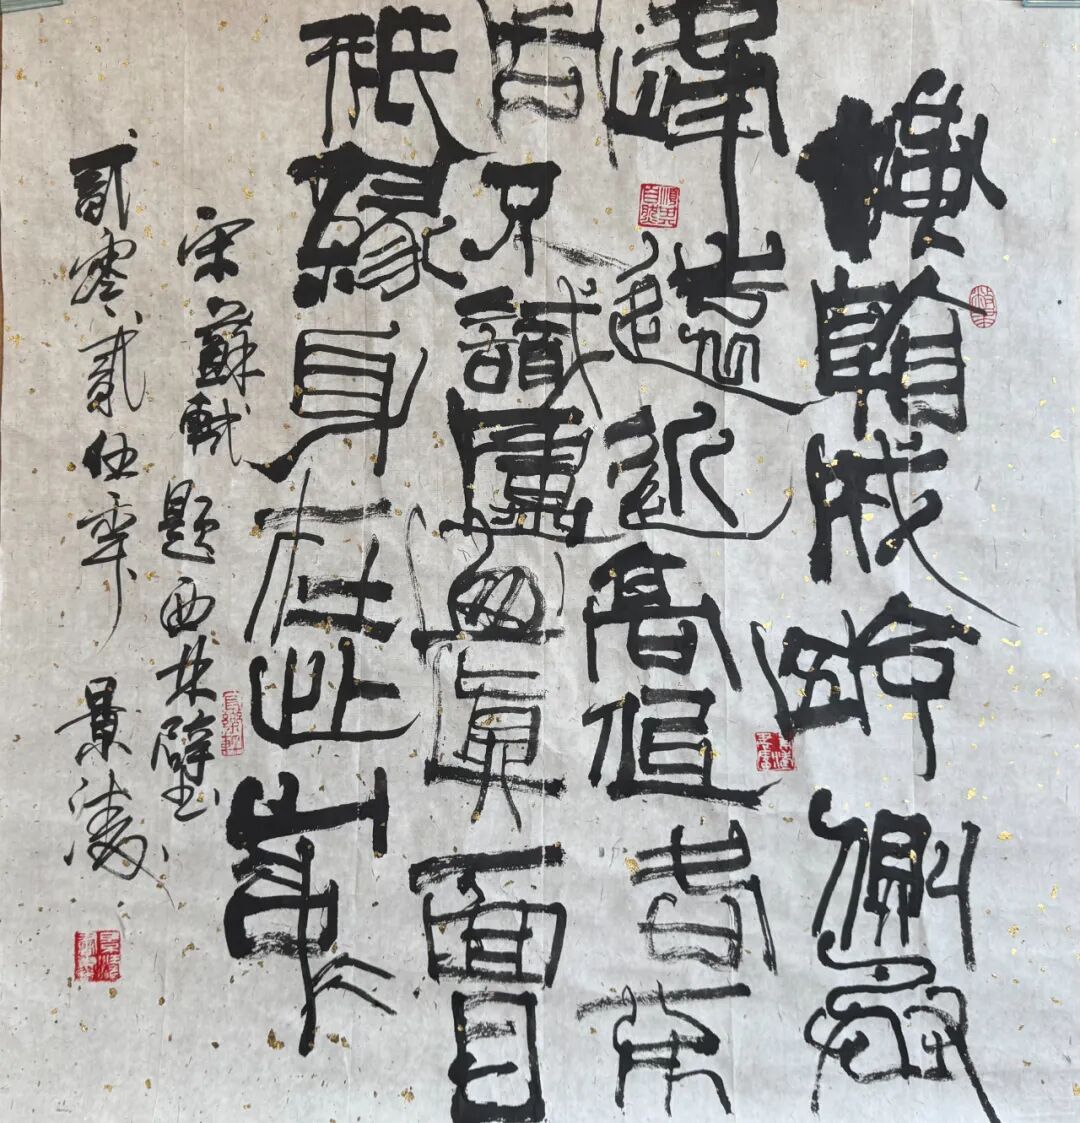 橫看成岭側成
峰遠近高低各不
同不識廬山真面目
祇緣身在此山中
宋蘇軾题西林壁
貳零貳伍年 景涛